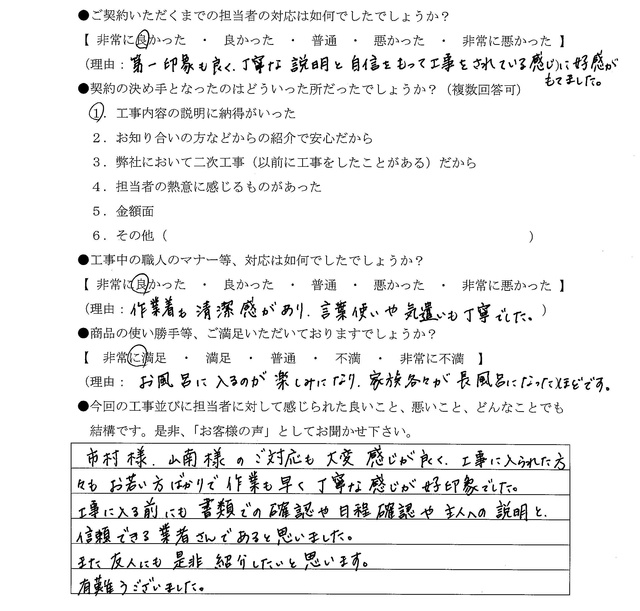 ●ご契約いただくまでの担当者の対応は如何でしたでしょうか？
【 非常に良かった ・ 良かった ・ 普通 ・ 悪かった ・ 非常に悪かった 】
(理由： 第一印象も良く、丁寧な 説明と 自信をもって工事をされている感じに好感が
もてました。
●契約の決め手となったのはどういった所だったでしょうか？（複数回答可）
1．工事内容の説明に納得がいった
2．お知り合いの方などからの紹介で安心だから
3．弊社において二次工事（以前に工事をしたことがある）だから
4．担当者の熱意に感じるものがあった
5．金額面
6．その他（ ）
●工事中の職人のマナー等、対応は如何でしたでしょうか？
【 非常に良かった ・ 良かった ・ 普通 ・ 悪かった ・ 非常に悪かった 】
(理由： 作業着も 清潔感があり、言葉使いや気遣いも丁寧でした。)
●商品の使い勝手等、ご満足いただいておりますでしょうか？
【 非常に満足 ・ 満足 ・ 普通 ・ 不満 ・ 非常に不満 】
(理由： お風呂に入るのが 楽しみになり、家族各々が 長風呂になったほどです。
●今回の工事並びに担当者に対して感じられた良いこと、悪いこと、どんなことでも
結構です。是非、「お客様の声」としてお聞かせ下さい。
市村様、山南様 のご対応も 大変 感じが良く、工事に入られた方
々も お若い方ばかりで 作業も早く 丁寧な感じが 好印象でした。
工事に入る前にも 書類での確認や日程確認や主人への説明と、
信頼できる業者さんであると思いました。
また友人にも是非 紹介したいと思います。
有難うございました。